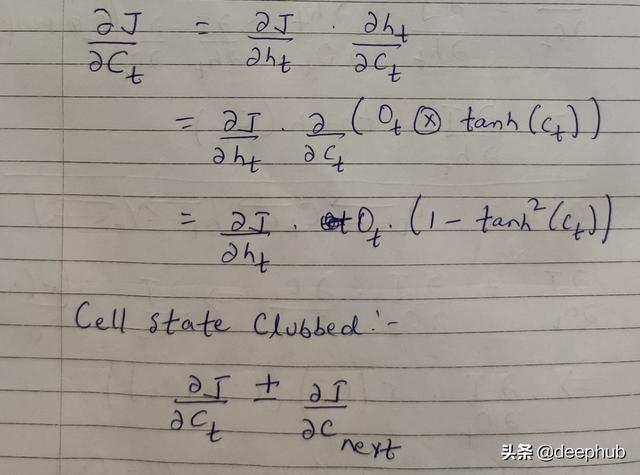 ∂J/∂C_t = ∂J/∂h_t · ∂h_t/∂C_t
= ∂J/∂h_t · ∂/∂C_t (O_t ⊗ tanh(C_t))
= ∂J/∂h_t · O_t · (1 - tanh²(C_t))
Cell state Clubbed :-
∂J/∂C_t ± ∂J/∂C_next
头条 @deephub